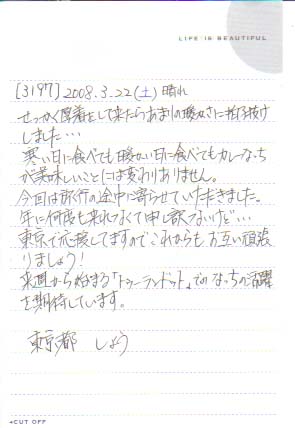 LIFE IS BEAUTIFUL
[3197] 2008.3.22(土) 晴れ
せっかく厚着をして来たらあまりの暖かさに拍子抜け
しました…
寒い日に食べても暖かい日に食べてもカレーなっち
が美味しいことには変わりありません。
今回は旅行の途中に寄らせていただきました。
年に何度も来れなくて申し訳ないけど…
東京で応援してますのでこれからもお互い頑張
りましょう!
来週から始まる「トゥーランドット」でのなっちの活躍
を期待しています。
東京都 しょう
◂CUT OFF